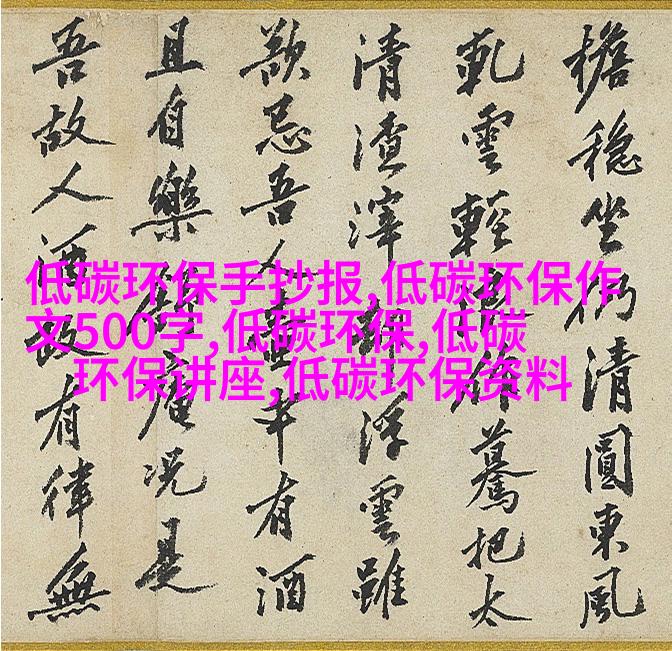 檐穩坐清圓東風
軋雲輕驀把太
清渣滓浮雲雖
忌吾人有酒
且自樂庵况是
吾故人酒政有律無
低碳环保手抄报,低碳环保作
文500字,低碳环保,低碳
环保讲座,低碳环保资料